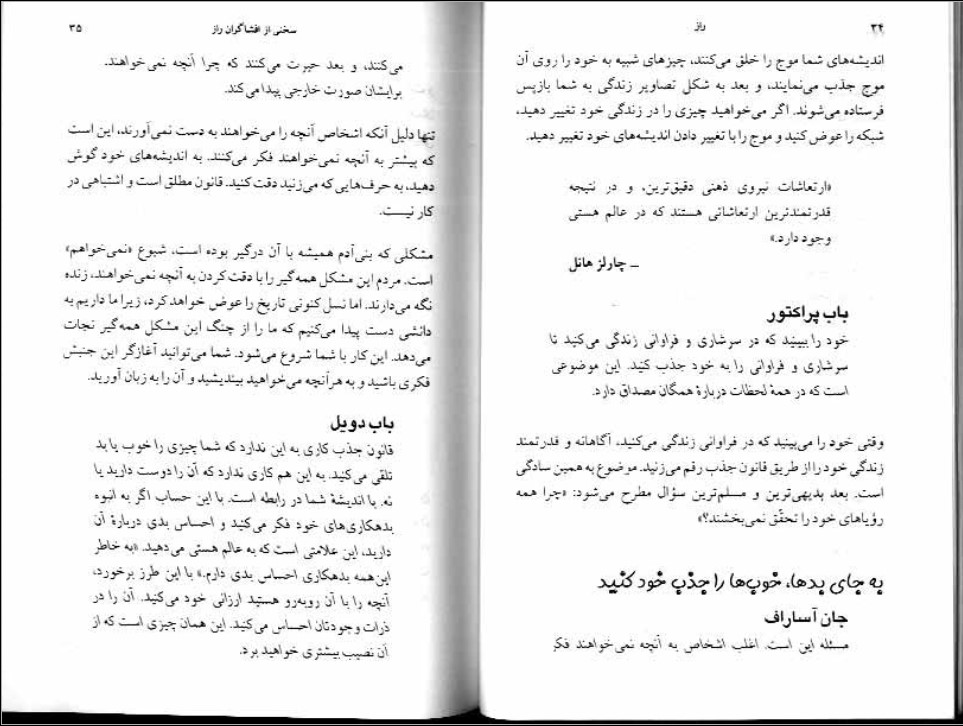 ۳۴
راز
اندیشه‌های شما موج را خلق می‌کنند، چیزهای شبیه به خود را روی آن
موج جذب می‌نمایند، و بعد به شکل تصاویر زندگی به شما بازپس
فرستاده می‌شوند. اگر می‌خواهید چیزی را در زندگی خود تغییر دهید،
شبکه را عوض کنید و موج را با تغییر دادن اندیشه‌های خود تغییر دهید.
«ارتعاشات نیروی ذهنی دقیق‌ترین، و در نتیجه
قدرتمندترین ارتعاشاتی هستند که در عالم هستی
وجود دارد.»
ـ چارلز هانل
باب پراکتور
خود را ببینید که در سرشاری و فراوانی زندگی می‌کنید تا
سرشاری و فراوانی را به خود جذب کنید. این موضوعی
است که در همهٔ لحظات دربارهٔ همگان مصداق دارد.
وقتی خود را می‌بینید که در فراوانی زندگی می‌کنید، آگاهانه و قدرتمند
زندگی خود را از طریق قانون جذب رقم می‌زنید. موضوع به همین سادگی
است. بعد بدیهی‌ترین و مسلم‌ترین سؤال مطرح می‌شود: «چرا همه
رؤیاهای خود را تحقّق نمی‌بخشند؟»
به جای بدها، خوب‌ها را جذب خود کنید
جان آساراف
مسئله این است. اغلب اشخاص به آنچه نمی‌خواهند فکر
سخنی از افشاگران راز
۳۵
می‌کنند، و بعد حیرت می‌کنند که چرا آنچه نمی‌خواهند.
برایشان صورت خارجی پیدا می‌کند.
تنها دلیل آنکه اشخاص آنچه را می‌خواهند به دست نمی‌آورند، این است
که بیشتر به آنچه نمی‌خواهند فکر می‌کنند. به اندیشه‌های خود گوش
دهید، به حرف‌هایی که می‌زنید دقت کنید. قانون مطلق است و اشتباهی در
کار نیست.
مشکلی که بنی‌آدم همیشه با آن درگیر بوده است، شیوع «نمی‌خواهم»
است. مردم این مشکل همه‌گیر را با دقت کردن به آنچه نمی‌خواهند، زنده
نگه می‌دارند. اما نسل کنونی تاریخ را عوض خواهد کرد، زیرا ما داریم به
دانشی دست پیدا می‌کنیم که ما را از چنگ این مشکل همه‌گیر نجات
می‌دهد. این کار با شما شروع می‌شود. شما می‌توانید آغازگر این جنبش
فکری باشید و به هرآنچه می‌خواهید بیندیشید و آن را به زبان آورید.
باب دویل
قانون جذب کاری به این ندارد که شما چیزی را خوب یا بد
تلقی می‌کنید. به این هم کاری ندارد که آن را دوست دارید یا
نه. با اندیشهٔ شما در رابطه است. با این حساب اگر به انبوه
بدهکاری‌های خود فکر می‌کنید و احساس بدی دربارهٔ آن
دارید، این علامتی است که به عالم هستی می‌دهید. «به خاطر
این‌همه بدهکاری احساس بدی دارم.» با این طرز برخورد،
آنچه را با آن روبه‌رو هستید ارزانی خود می‌کنید. آن را در
ذرات وجودتان احساس می‌کنید. این همان چیزی است که از
آن نصیب بیشتری خواهید برد.